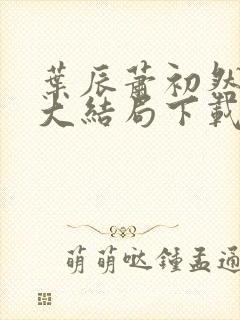 葉辰蕭初然
大結局下載
萌萌哒鍾孟通